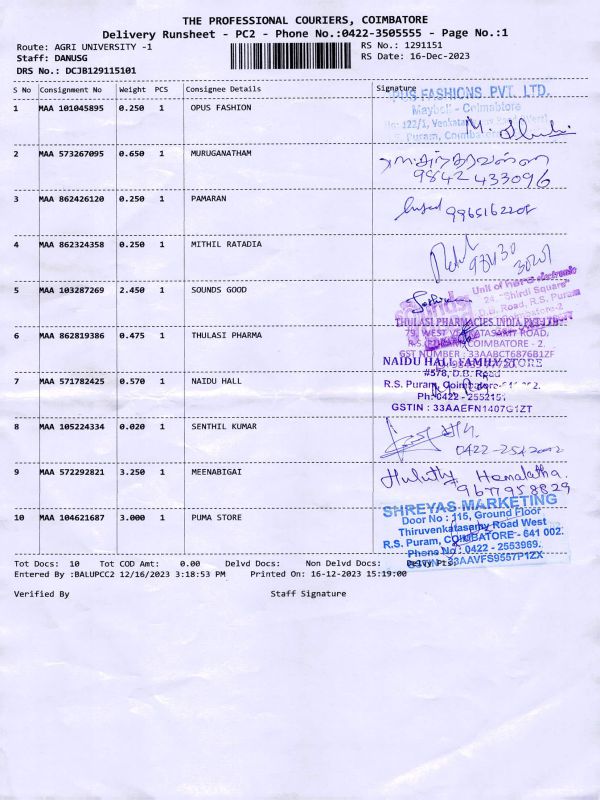 THE PROFESSIONAL COURIERS, COIMBATORE
Delivery Runsheet - PC2 - Phone No.:0422-3505555 - Page No.:1
Route: AGRI UNIVERSITY -1
RS No.: 1291151
Staff: DANUSG
RS Date: 16-Dec-2023
DRS No.: DCJB129115101
S No Consignment No Weight PCS Consignee Details Signature
1 MAA 101045895 0.250 1 OPUS FASHION
PUS FASHIONS PVT. LTD.
Maybell - Coimabtore
2 MAA 573267095 0.650 1 MURUGANATHAM
9842433096
3 MAA 862426120 0.250 1 PAMARAN
4 MAA 862324358 0.250 1 MITHIL RATADIA
5 MAA 103287269 2.450 1 SOUNDS GOOD
24, "Shirdi Square"
D.B. Road, R.S. Puram
6 MAA 862819386 0.475 1 THULASI PHARMA
THULASI PHARMACIES INDIA PVT LTD
79, WEST VENKATASAMY ROAD,
R.S. PURAM, COIMBATORE - 2.
GST NUMBER : 33AABCT6876B1ZF
7 MAA 571782425 0.570 1 NAIDU HALL
NAIDU HALL FAMILY STORE
#578, D.B. Road
R.S. Puram, Coimbatore
Ph: 0422 - 2552151
GSTIN : 33AAEFN1407G1ZT
8 MAA 105224334 0.020 1 SENTHIL KUMAR
9 MAA 572292821 3.250 1 MEENABIGAI
Hemalatha
9677958829
10 MAA 104621687 3.000 1 PUMA STORE
SHREYAS MARKETING
Door No : 115, Ground Floor
Thiruvenkatasamy Road West
R.S. Puram, COIMBATORE - 641 002.
Phone No : 0422 - 2553969.
GSTIN : 33AAVFS9557P1ZX
Tot Docs: 10 Tot COD Amt: 0.00 Delvd Docs: Non Delvd Docs: Delvy Pts:
Entered By :BALUPCC2 12/16/2023 3:18:53 PM Printed On: 16-12-2023 15:19:00
Verified By Staff Signature